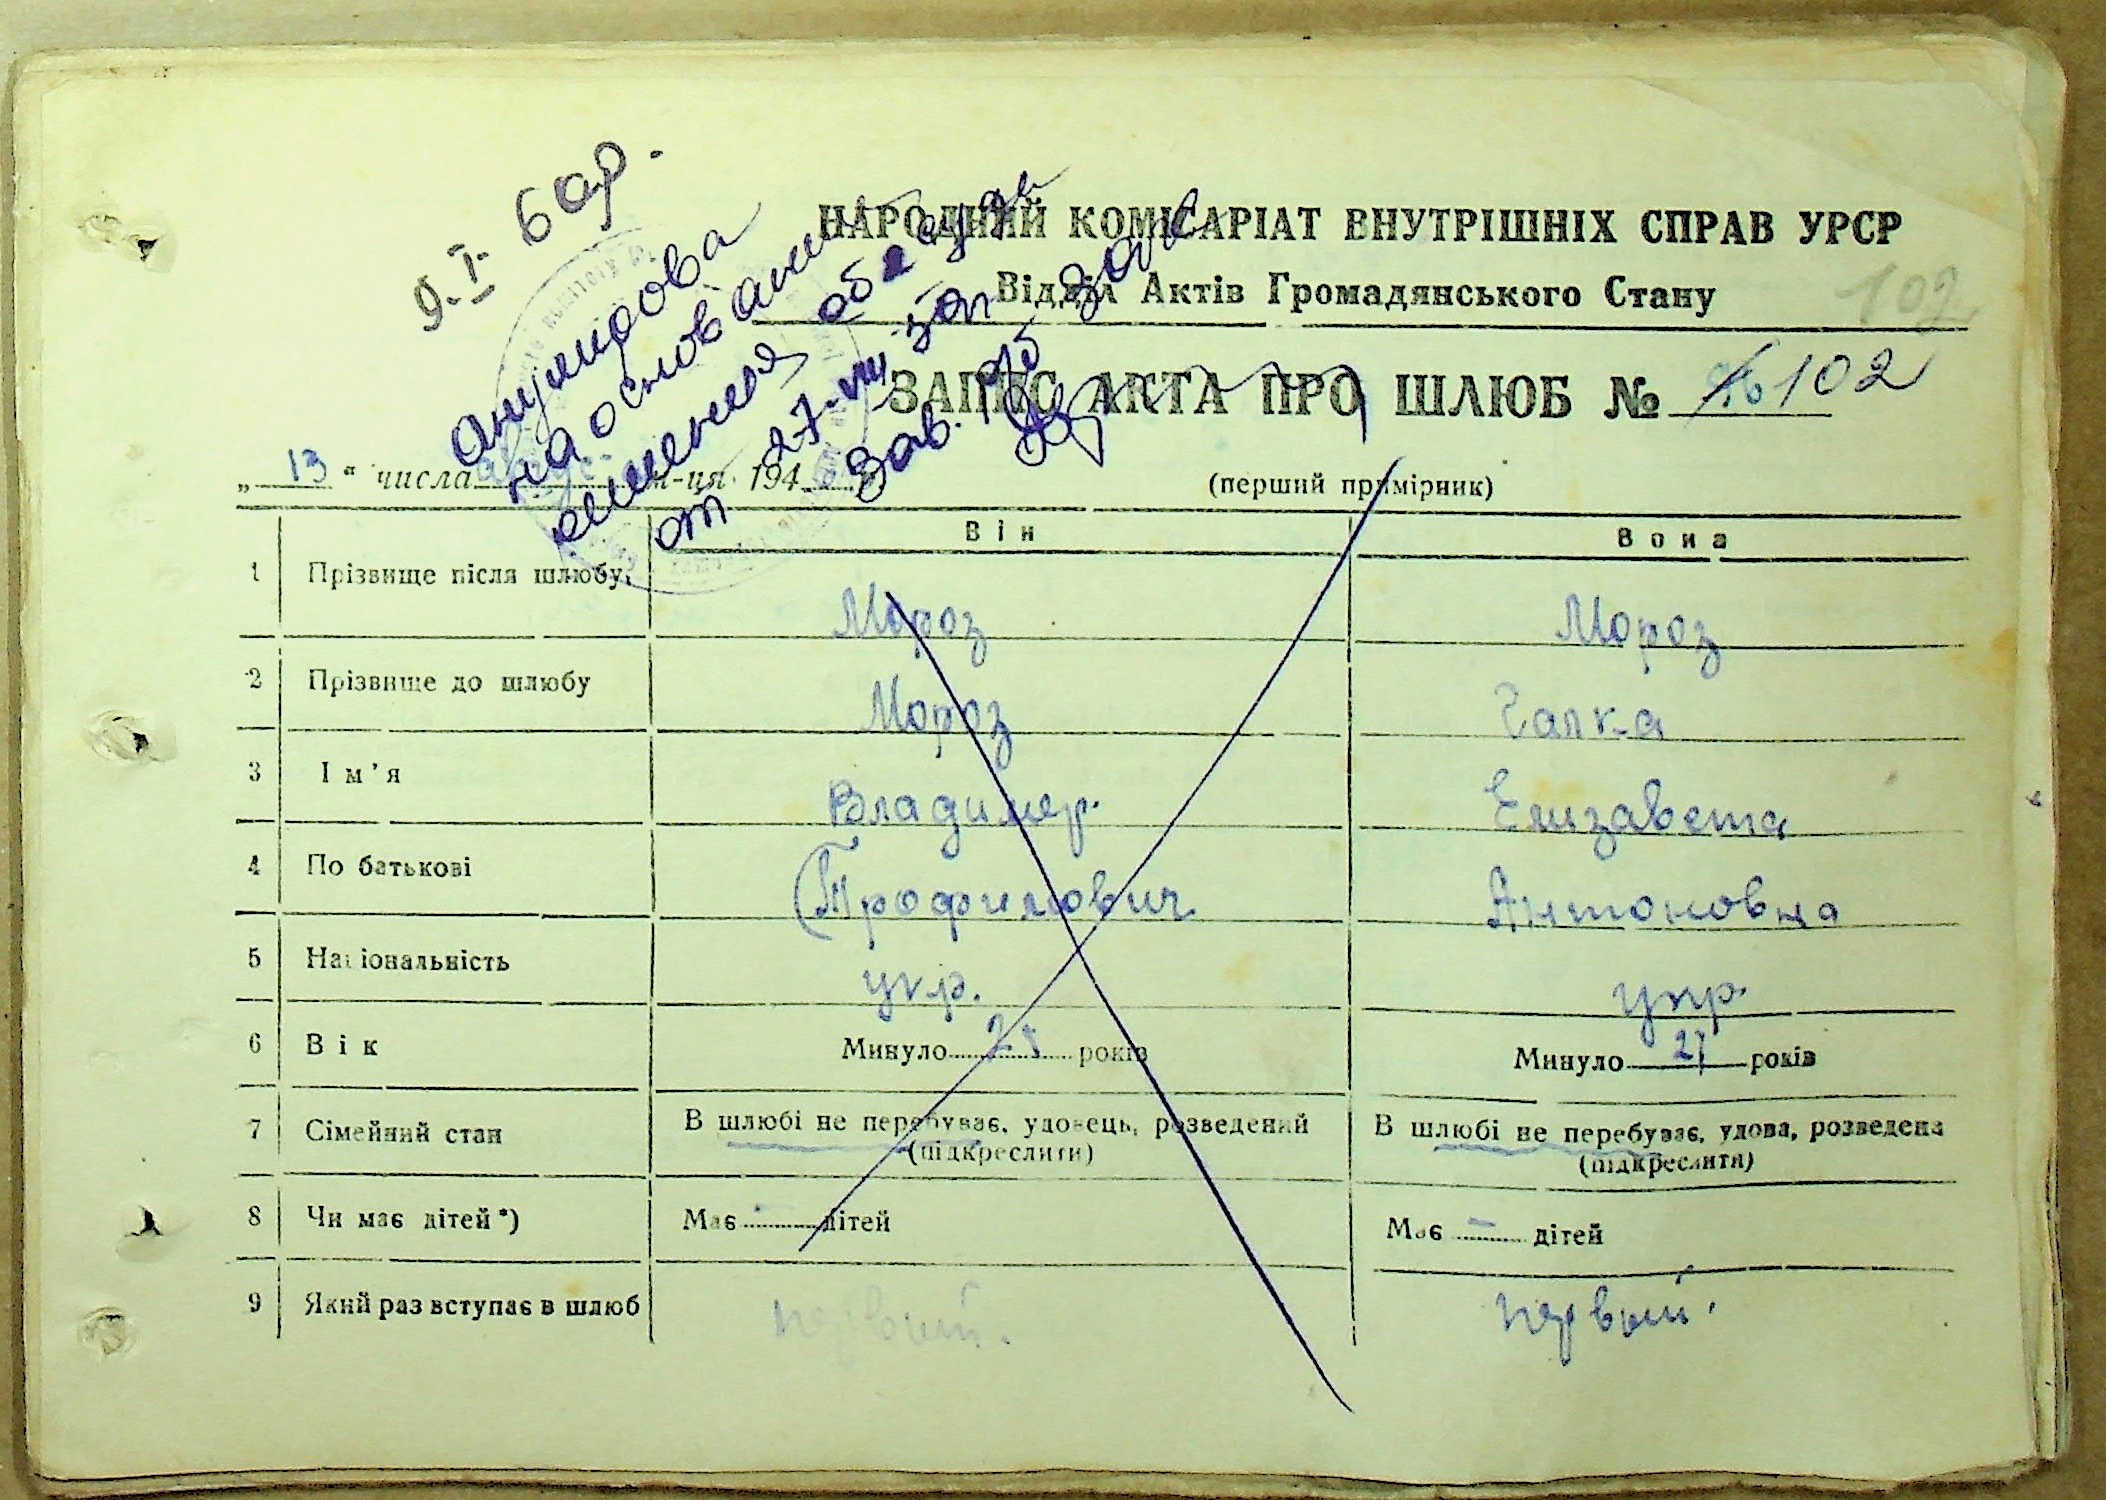 9.I. 60р.
НАРОДНИЙ КОМІСАРІАТ ВНУТРІШНІХ СПРАВ УРСР
Відділ Актів Громадянського Стану
102
ЗАПИС АКТА ПРО ШЛЮБ № 102
на основании
решения
от 27-VIII
Зав.
„ 13 “ числа м-ця 194
(перший примірник)
Він Вона
1 Прізвище після шлюбу Мороз Мороз
2 Прізвище до шлюбу Мороз Галка
3 Ім'я Владимер. Елизавета
4 По батькові Трофимович Антоновна
5 Національність укр. укр.
6 Вік Минуло років Минуло 27 років
7 Сімейний стан В шлюбі не перебуває, удовець, розведений В шлюбі не перебуває, удова, розведена
(підкреслити) (підкреслити)
8 Чи має дітей*) Має — дітей Має — дітей
9 Який раз вступає в шлюб первый. первый.